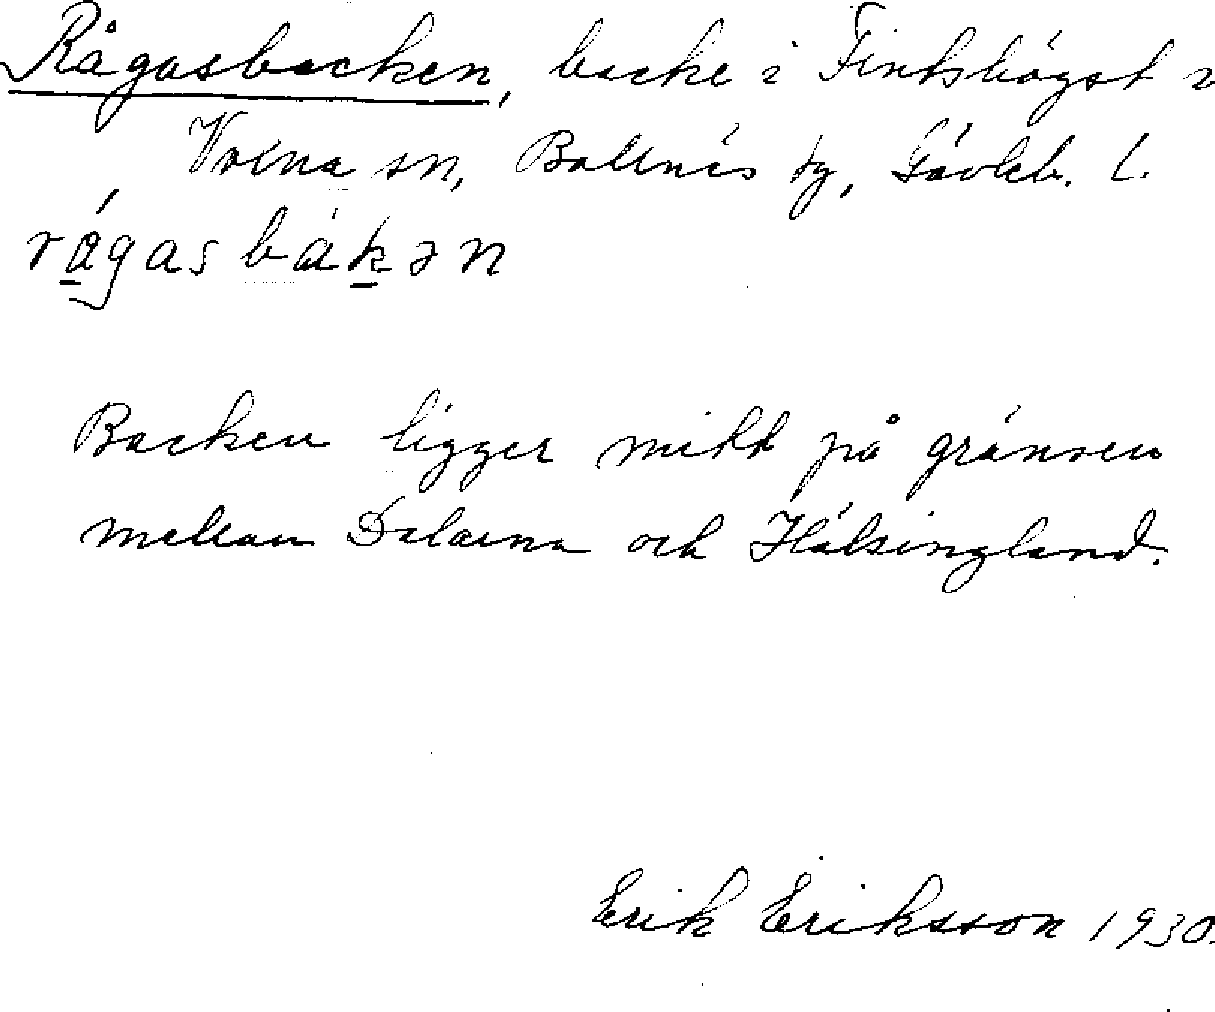 Rågasbacken, backe i Finkhögst i
Voxna sn, Bollnäs tg, Gävleb. l.
rågasbákən
Backen ligger mitt på gränsen
mellan Dalarna och Hälsingland.
Erik Eriksson 1930.